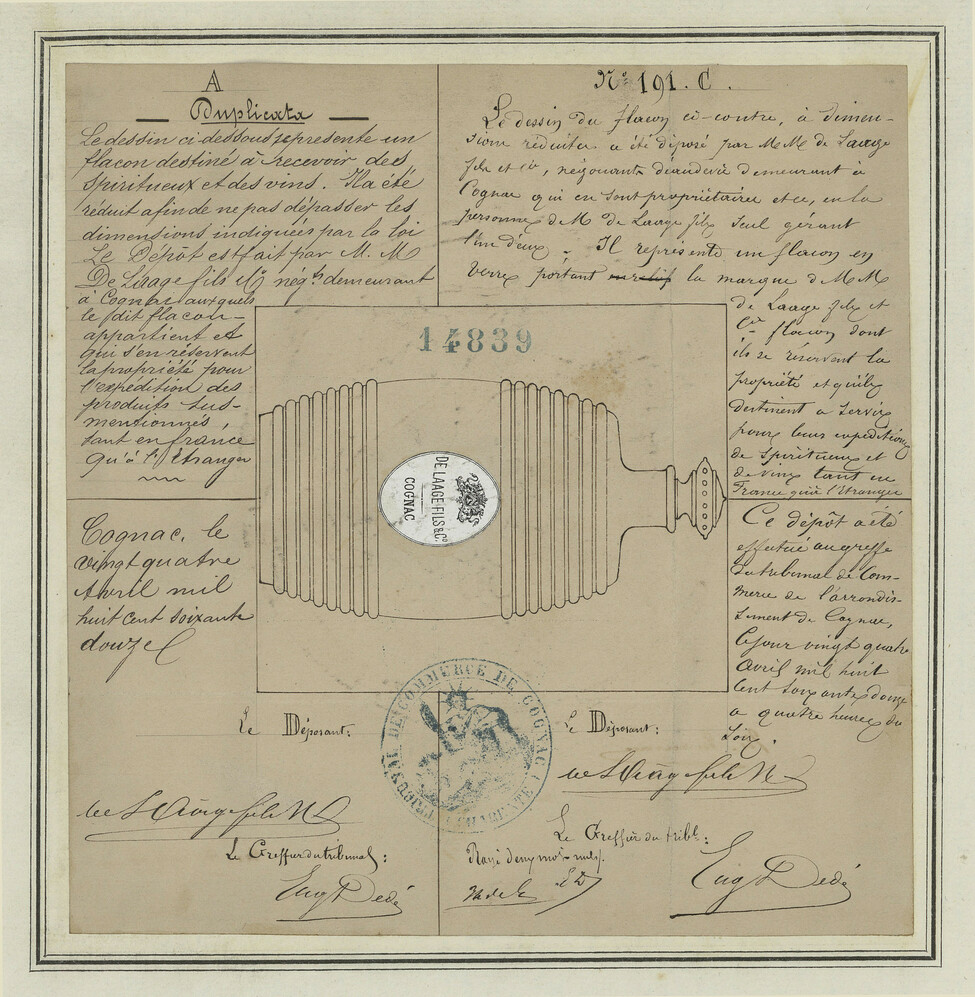 A
Duplicata
Le dessin ci-dessous représente un
flacon destiné à recevoir des
Spiritueux et des vins. Il a été
réduit afin de ne pas dépasser les
dimensions indiquées par la loi
Le Dépôt est fait par M. M
De Laage fils & Cº négts demeurant
à Cognac auxquels
le dit flacon
appartient et
qui s'en réservent
la propriété pour
l'expédition des
produits sus-
mentionnés,
tant en france
qu'à l'Étranger
Cognac, le
vingt quatre
Avril mil
huit cent soixante
douze
Le Déposant:
de Laage fils & Cº
Le Greffier du tribunal:
Eug Dedé
Nº 191. C.
Le dessin du flacon ci-contre, à dimen-
sions réduites a été déposé par M M de Laage
fils et Cie, négociants d'eau de vie demeurant à
Cognac qui en sont propriétaires et ce, en la
personne de M de Laage fils seul gérant
l'un d'eux. Il représente un flacon en
verre portant en relief la marque de M M
de Laage fils et
Cie flacon dont
ils se réservent la
propriété et qu'ils
destinent à servir
pour leurs expéditions
de Spiritueux et
de vins tant en
France qu'à l'étranger
Ce dépôt a été
effectué au greffe
du tribunal de Com-
merce de l'arrondis-
sement de Cognac,
ce jour vingt quatre
avril mil huit
cent soixante douze
à quatre heures du
soir.
Le Déposant:
de Laage fils & Cº
Le Greffier du tribl:
Rayé deux mots nuls.
ED
Eug Dedé
14839
DE LAAGE FILS & Cº
COGNAC
TRIBUNAL DE COMMERCE DE COGNAC (CHARENTE)